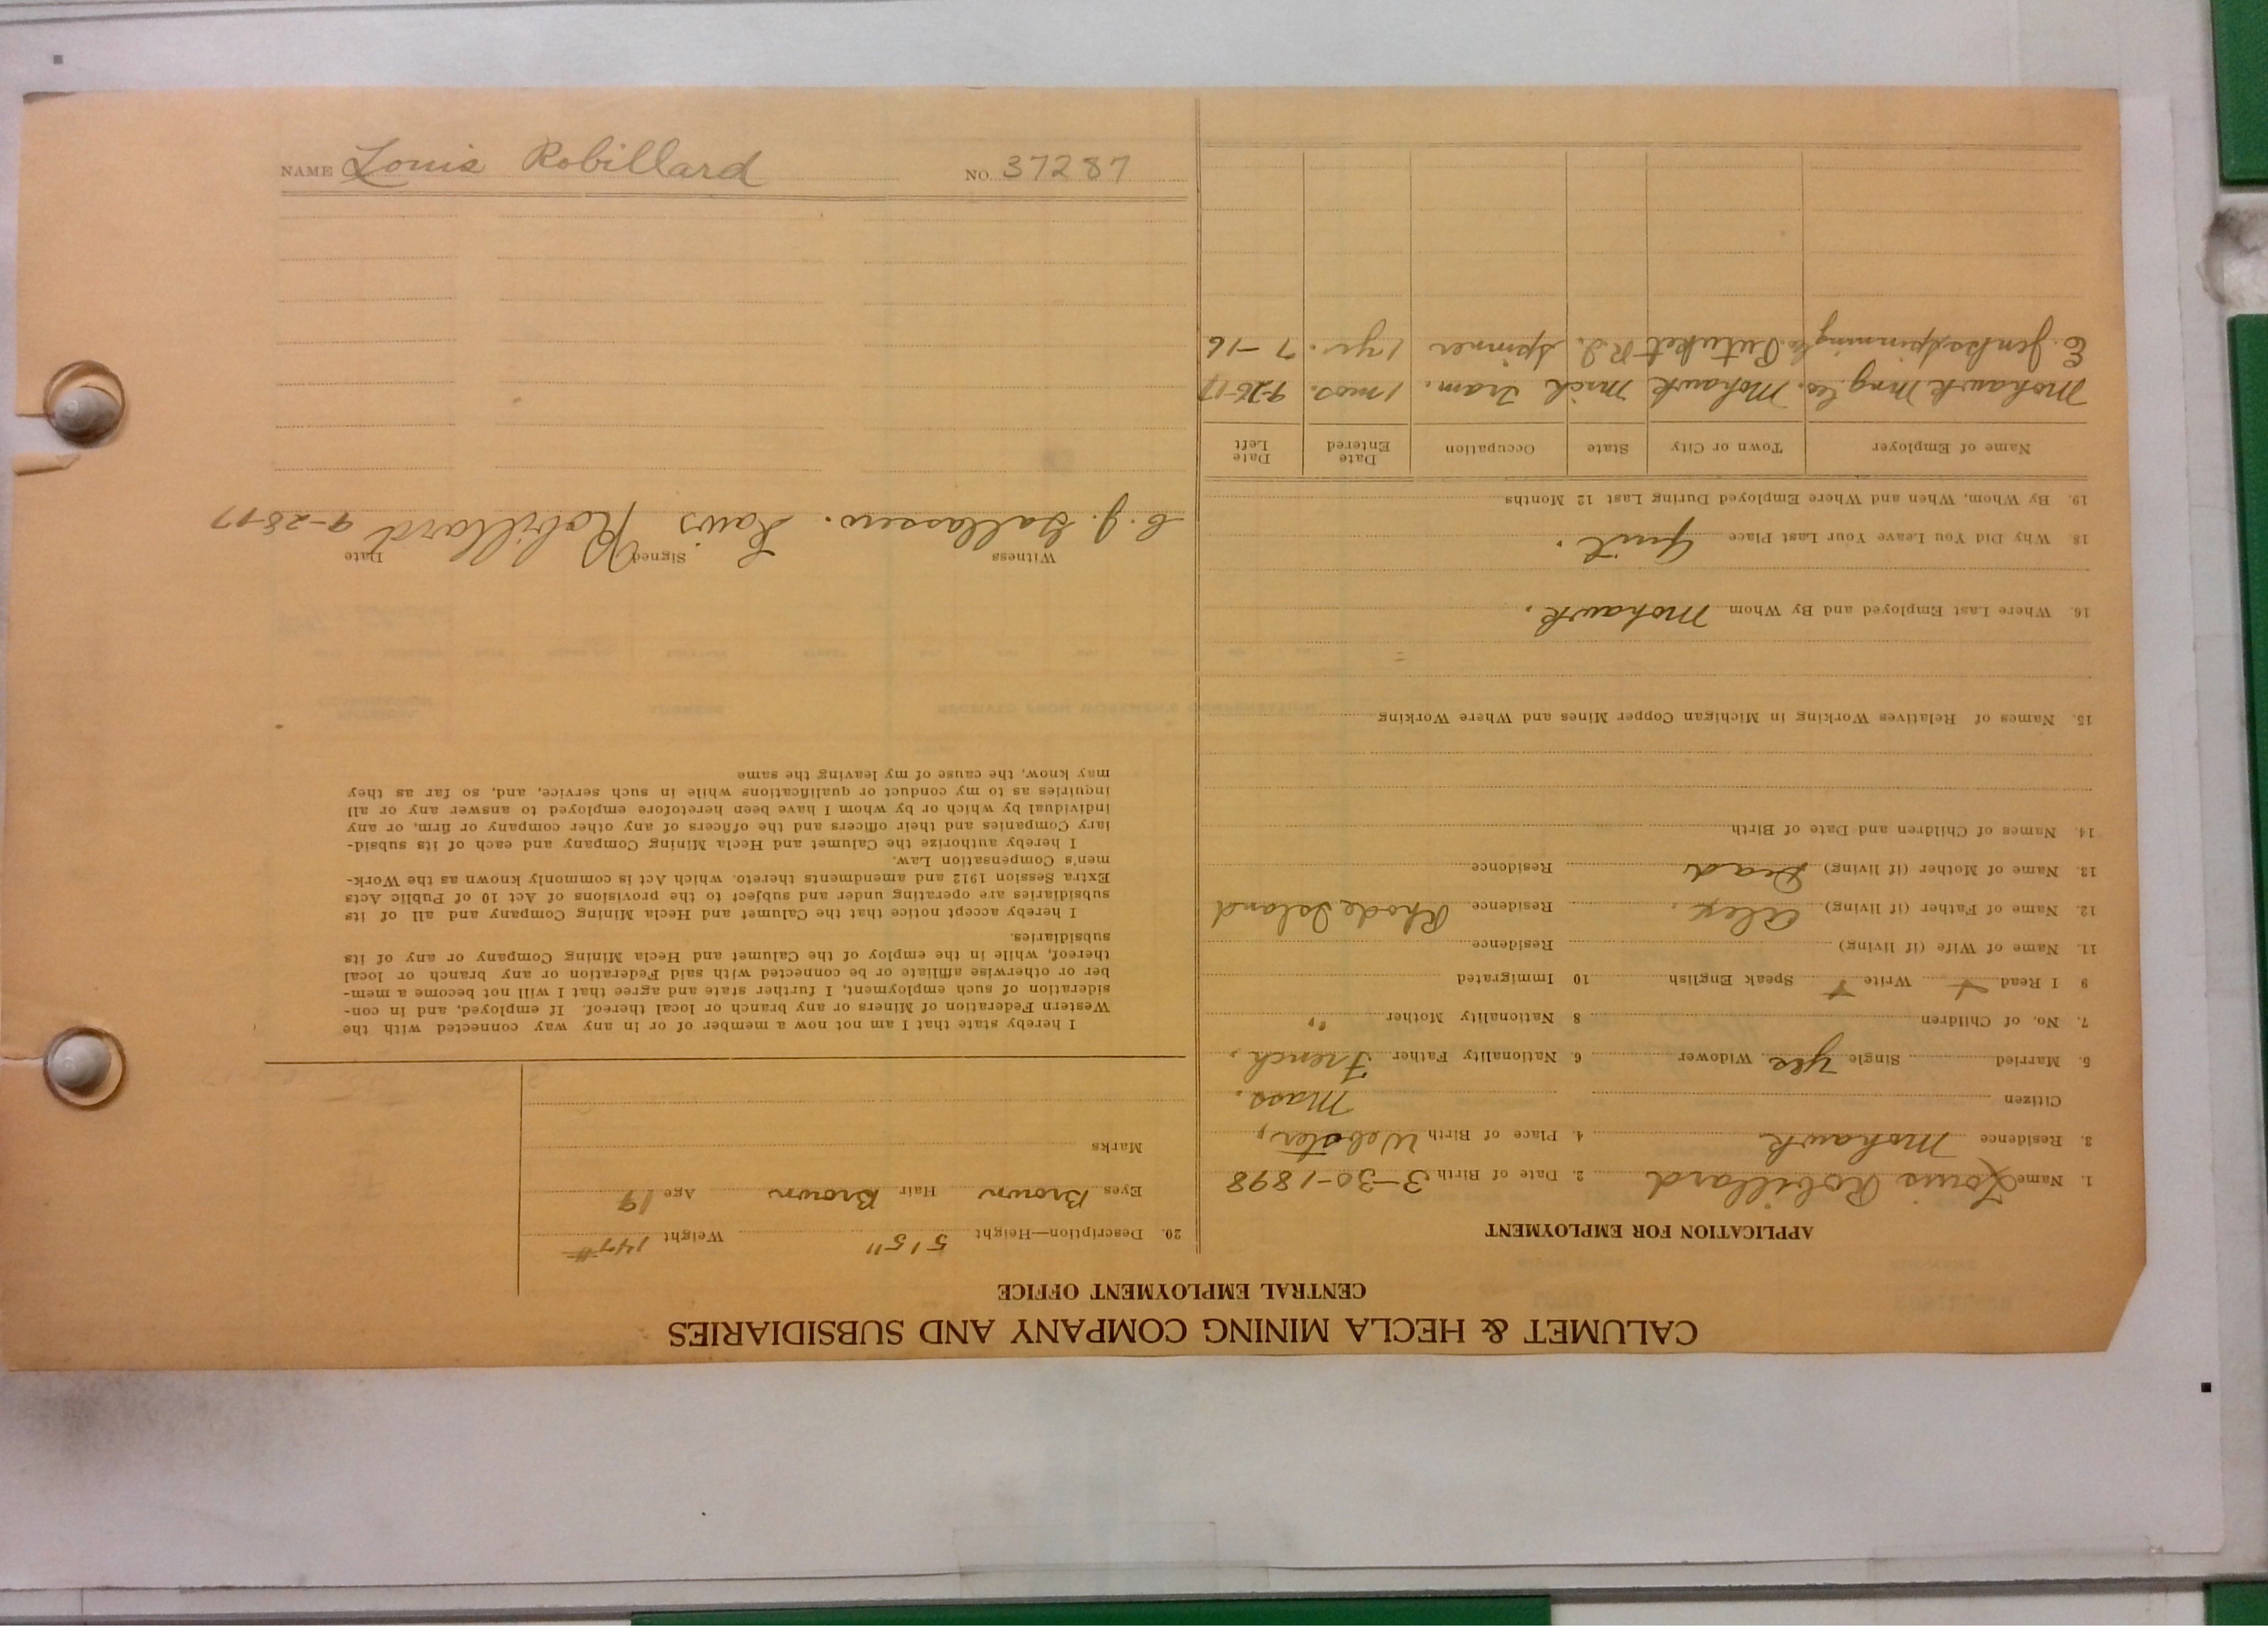 CALUMET & HECLA MINING COMPANY AND SUBSIDIARIES
CENTRAL EMPLOYMENT OFFICE
APPLICATION FOR EMPLOYMENT
1. Name Louis Robillard 2. Date of Birth 3-30-1898
3. Residence Mohawk 4. Place of Birth Webster,
Citizen Mass.
5. Married Single yes Widower 6. Nationality Father French.
7. No. of Children 8 Nationality Mother "
9 I Read + Write + Speak English 10 Immigrated
11. Name of Wife (if living) Residence
12. Name of Father (if living) Alex. Residence Rhode Island
13. Name of Mother (if living) Dead Residence
14. Names of Children and Date of Birth
15. Names of Relatives Working in Michigan Copper Mines and Where Working
16. Where Last Employed and By Whom Mohawk.
18 Why Did You Leave Your Last Place Quit.
19. By Whom, When and Where Employed During Last 12 Months
Name of Employer Town or City State Occupation Date Entered Date Left
Mohawk Mng. Co. Mohawk Mich Tram. 1 mos. 9-26-17
E. Jenks Spinning Co. Putuket R.I. Spinner 1 yr. 7-16
20. Description—Height 5'5" Weight 147#
Eyes Brown Hair Brown Age 19
Marks
I hereby state that I am not now a member of or in any way connected with the
Western Federation of Miners or any branch or local thereof. If employed, and in con-
sideration of such employment, I further state and agree that I will not become a mem-
ber or otherwise affiliate or be connected with said Federation or any branch or local
thereof, while in the employ of the Calumet and Hecla Mining Company or any of its
subsidiaries.
I hereby accept notice that the Calumet and Hecla Mining Company and all of its
subsidiaries are operating under and subject to the provisions of Act 10 of Public Acts
Extra Session 1912 and amendments thereto. which Act is commonly known as the Work-
men's Compensation Law.
I hereby authorize the Calumet and Hecla Mining Company and each of its subsid-
iary Companies and their officers and the officers of any other company or firm, or any
individual by which or by whom I have been heretofore employed to answer any or all
inquiries as to my conduct or qualifications while in such service, and, so far as they
may know, the cause of my leaving the same
Witness Signed Date
C. J. Louis Robillard 9-28-17
NAME Louis Robillard NO. 37287